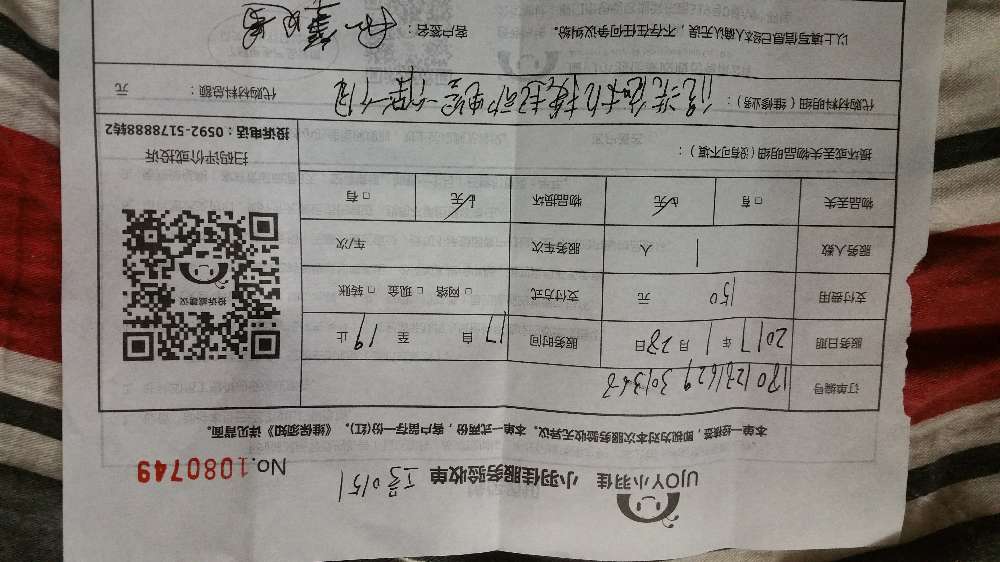 UJOY小羽佳 小羽佳服务验收单 工号0151 No.1080749
本单一经签，即视为对本次服务验收无异议。本单一式两份，客户留存一份(红)。《维保须知》详见背面。
订单编号
服务日期 2017年1月28日 服务时间 17自 至 19止
支付费用 150元 支付方式 □网络 □现金 □转账
服务人数 1人 服务车次 车/次
物品丢失 □有 无 物品损坏 无 □有
投诉或建议
扫码评价或投诉
投诉电话：0592-5178888转2
损坏或丢失物品明细（没有可不填）：
代购材料明细（维修业务）： 代购材料总额： 元
以上填写信息已经本人确认无误，不存在任何争议纠纷。 客户签名：